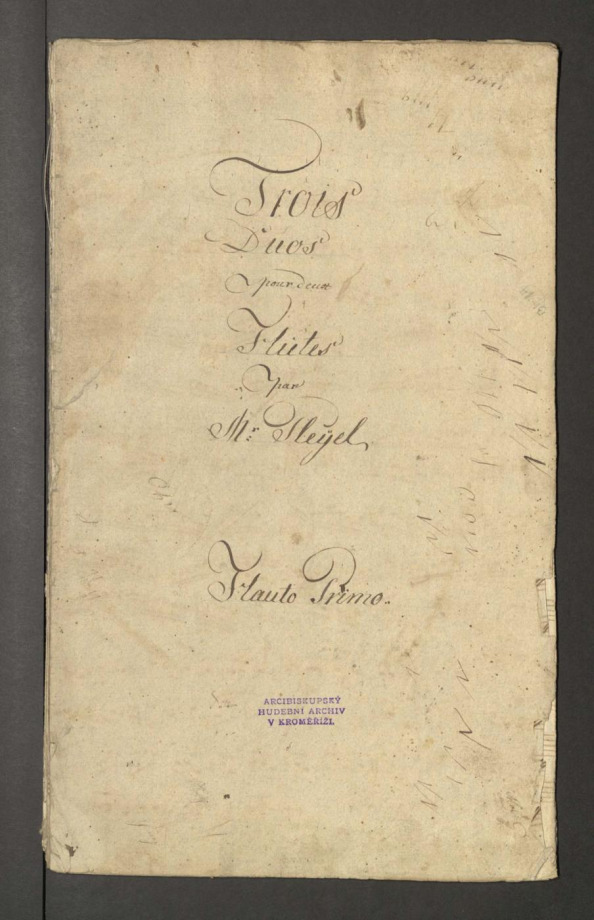 Trois
Duos
pour deux
Flütes
par
Mr: Pleÿel
Flauto Primo.
ARCIBISKUPSKÝ
HUDEBNÍ ARCHIV
V KROMĚŘÍŽI.